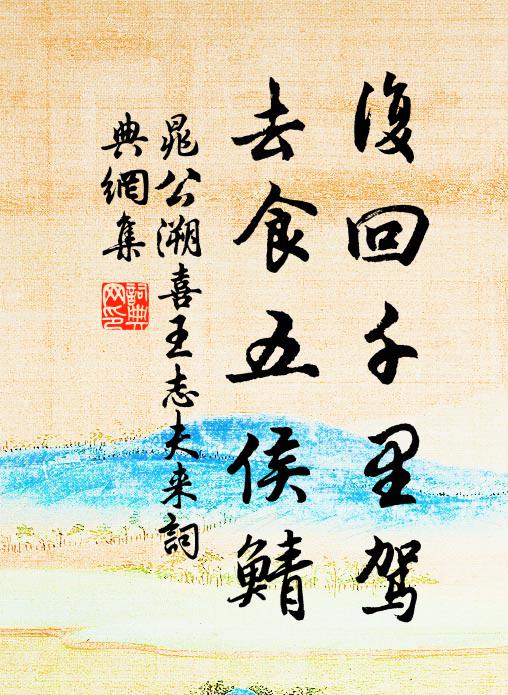 復回千里駕
去食五侯鯖
晁公溯喜王志夫来詞
典網集
詞典
网印